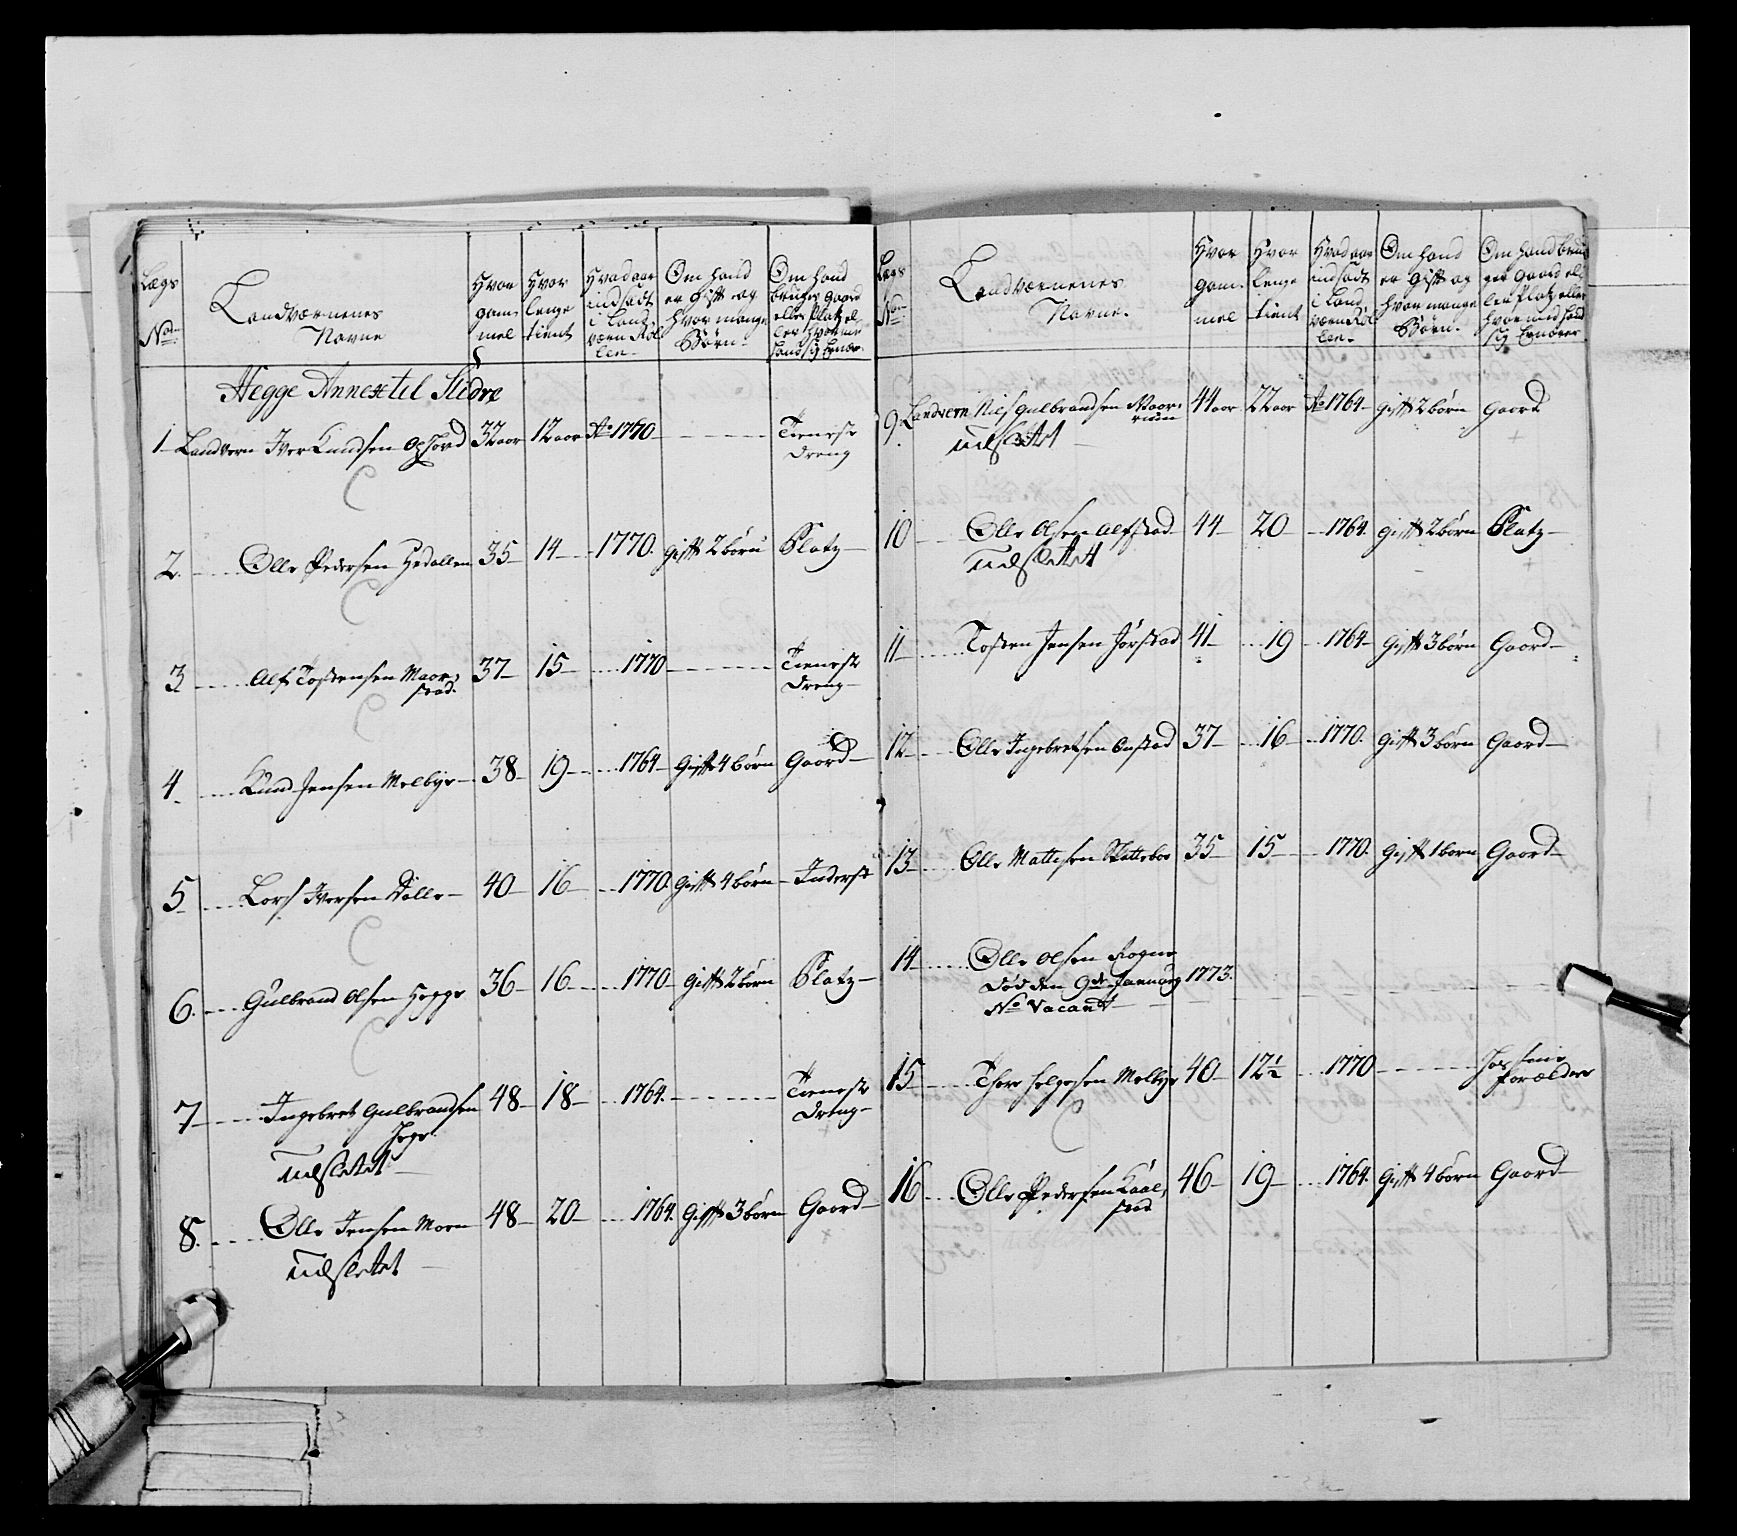 Lægs
No
Landværnenes
Navne
Hvor
gam-
mel
Hvor
lenge
tient
Hvad aar
indsadt
i Land
værn Rol
len
Om hand
er gift og
hvor mange
Børn
Om hand
bruger gaard
eller Platz el
ler hvormed
hand sig Ernær
Hegge Annex til Slidre
1 Landvern Iver Knudsen Opsord 32 aar 12 aar Ao 1770 Tieneste
Dreng
2 Olle Pedersen Hedallen 35 14 1770 gift 2 børn Platz
3 Alf Tostensen Maar, 37 15 1770 Tieneste
stad Dreng
4 Knud Jensen Melbye 38 19 1764 Gift 4 børn Gaard
5 Lars Iversen Dälle 40 16 1770 Gift 4 børn Inderst
6 Gulbrand Olsen Hegge 36 16 1770 Gift 2 børn Platz
7 Ingebret Gulbrandsen 48 18 1764 Tieneste
Dreng
udslettet
8 Olle Jensen Moen 48 20 1764 Gift 3 børn Gaard
udslettet
Lægs
No
Landværnenes
Navne
Hvor
gam-
mel
Hvor
lenge
tient
Hvad aar
indsadt
i Land
værn Rol
len
Om hand
er gift og
hvor mange
Børn
Om hand bru
ger gaard el
ler Platz eller
hvormed hand
sig Ernærer
9 Landvern Niels Gulbrandsen 44 aar 22 aar Ao 1764 gift 2 børn Gaard
udslettet
10 Olle Olsen Alfstad 44 20 1764 gift 2 børn Platz
udslettet
11 Tosten Jensen Jørstad 41 19 1764 Gift 3 børn Gaard
12 Olle Ingebretsen Onstad 37 16 1770 Gift 3 børn Gaard
13 Olle Mattisen Skatteboe 35 15 1770 Gift 1 barn Gaard
14 Olle Olsen Rogne
død den 9de January 1773.
No Vacant
15 Thore Helgesen Melbye 40 12½ 1770 Hos seine
Forældre
16 Olle Pedersen Kaal, 46 19 1764 Gift 4 børn Gaard
stad